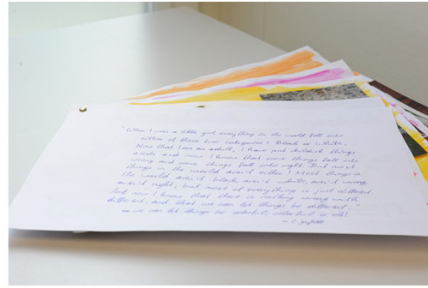 "When I was a little girl, everything in the world fell into
either of these two categories: Black or White.
Now that I am an adult, I have put childish things
aside and now I know that some things fall into
wrong and some things fall into right. But most
things in the world aren't either! Most things in
the world aren't black, aren't white, aren't wrong
aren't right, but most of everything is just different.
And now I know that there is nothing wrong with
different, and that we can let things be different."